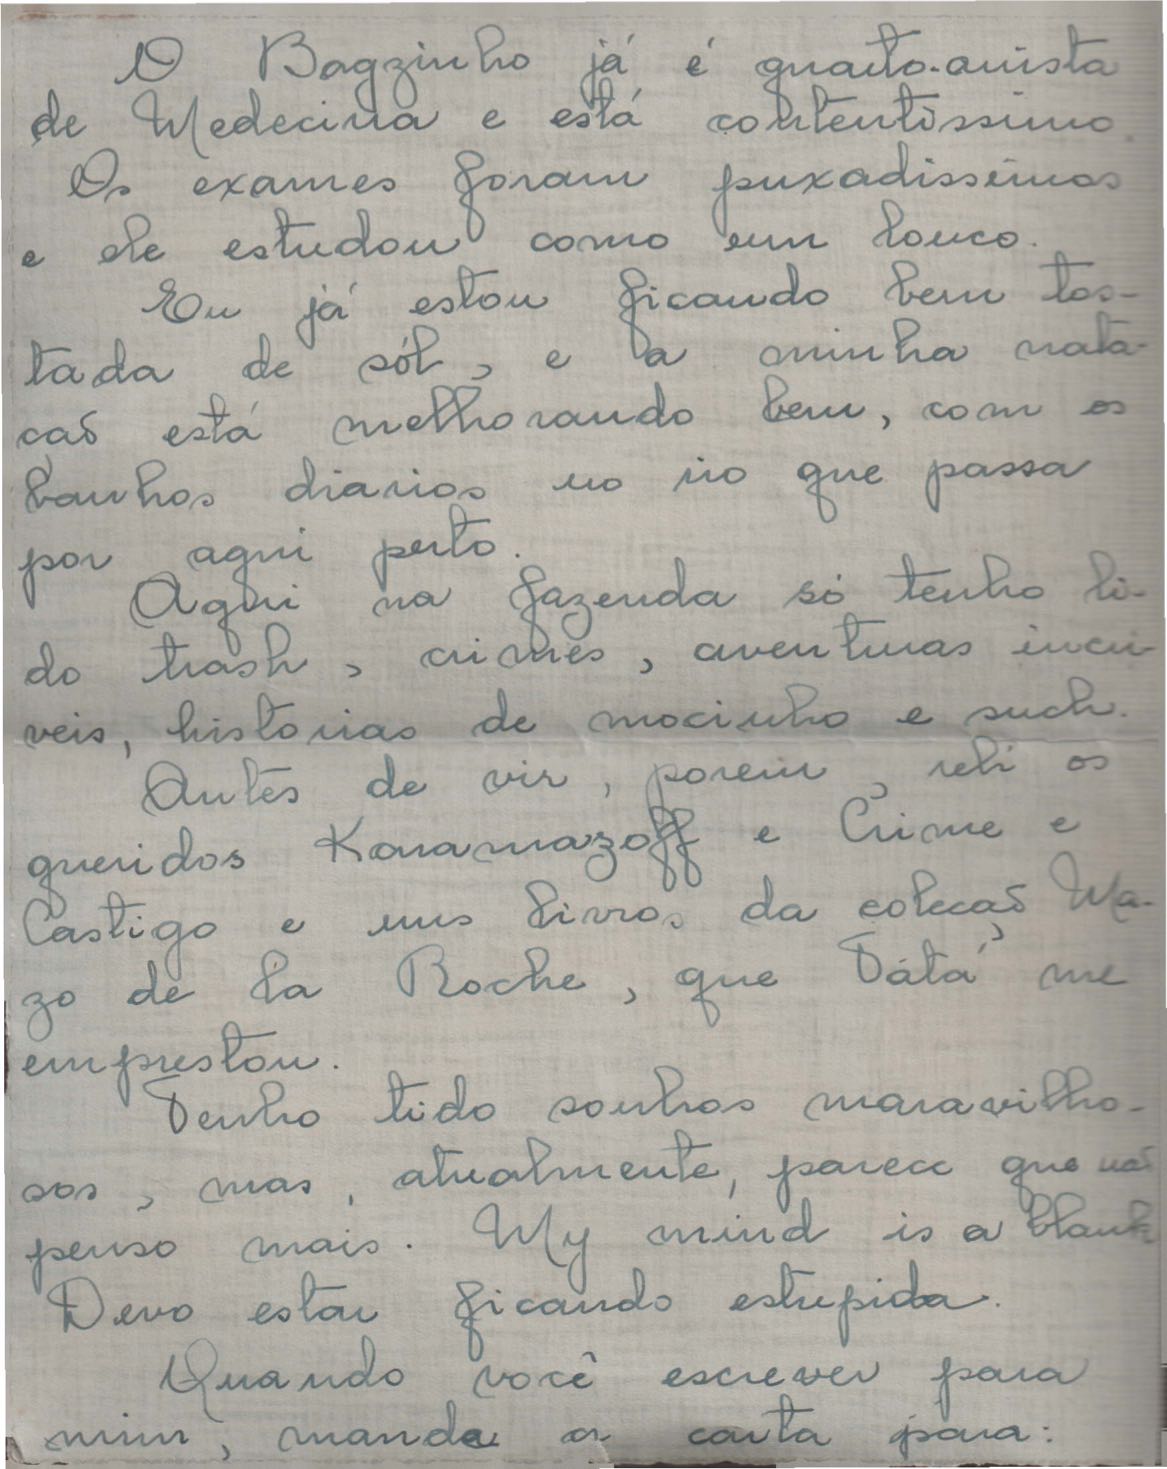 O Bagzinho já é quarto-anista
de Medecina e está contentissimo.
Os exames foram puxadissimos
e ele estudou como um louco.
Eu já estou ficando bem tos-
tada de sól, e a minha nata-
caõ está melhorando bem, com os
banhos diarios no rio que passa
por aqui perto.
Aqui na fazenda só tenho li-
do trash, crimes, aventuras incri-
veis, historias de mocinho e such.
Antes de vir, porem, reli os
queridos Karamazoff e Crime e
Castigo e uns livros da coleçaõ Ma-
zo de la Roche, que Tátá me
emprestou.
Tenho tido sonhos maravilho-
sos, mas, atualmente, parece que naõ
penso mais. My mind is a blank
Devo estar ficando estupida.
Quando você escrever para
mim, mande a carta para: